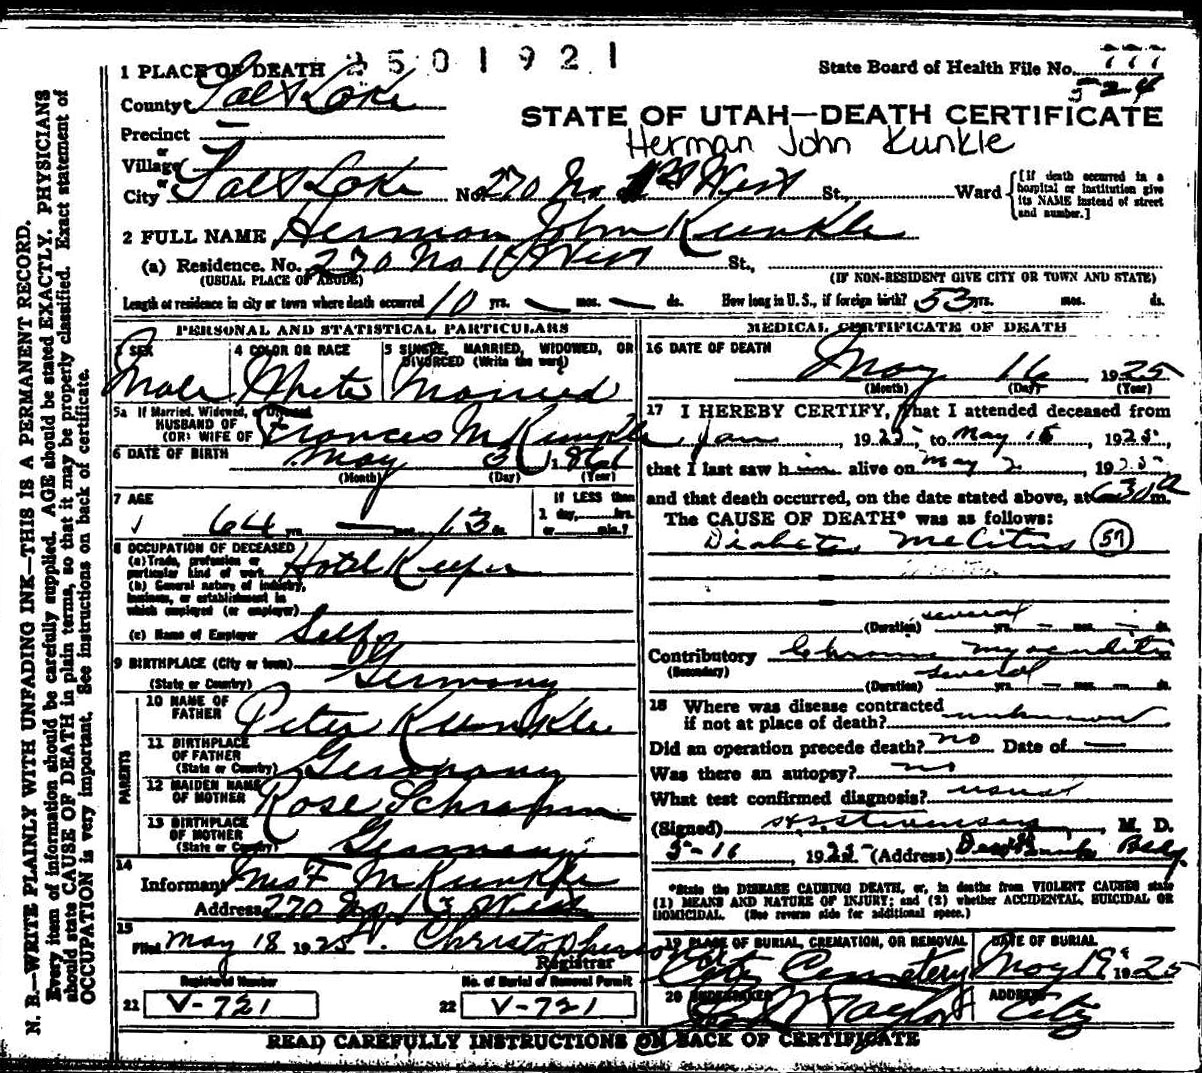 2501921
1 PLACE OF DEATH
State Board of Health File No. 777
524
County Salt Lake
STATE OF UTAH—DEATH CERTIFICATE
Herman John Kunkle
Precinct —
or
Village
or
City Salt Lake No. 270 No. 1st West St., Ward
[If death occurred in a hospital or institution give its NAME instead of street and number.]
2 FULL NAME Herman John Kunkle
(a) Residence. No. 270 No 1st West St.,
(USUAL PLACE OF ABODE) (IF NON-RESIDENT GIVE CITY OR TOWN AND STATE)
Length of residence in city or town where death occurred 10 yrs. — mos. — ds. How long in U. S., if foreign birth? 53 yrs. mos. ds.
PERSONAL AND STATISTICAL PARTICULARS
3 SEX Male
4 COLOR OR RACE White
5 SINGLE, MARRIED, WIDOWED, OR DIVORCED (Write the word) Married
5a If Married, Widowed, or Divorced
HUSBAND OF
(OR) WIFE OF Frances M Kunkle
6 DATE OF BIRTH May 3 1861
(Month) (Day) (Year)
7 AGE
64 yrs. — mos. 13 ds.
If LESS than
1 day, hrs.
or min.?
8 OCCUPATION OF DECEASED
(a) Trade, profession or
particular kind of work Hotel Keeper
(b) General nature of industry,
business, or establishment in
which employed (or employer)
(c) Name of Employer Self
9 BIRTHPLACE (City or town)
(State or Country) Germany
PARENTS
10 NAME OF
FATHER Peter Kunkle
11 BIRTHPLACE
OF FATHER
(State or Country) Germany
12 MAIDEN NAME
OF MOTHER Rose
13 BIRTHPLACE
OF MOTHER
(State or Country) Germany
14
Informant Mrs F M Kunkle
Address 270 No. 1st West
15
Filed May 18 1925. Christopherson
Registrar
Registered Number
21 V-721
No. of Burial or Removal Permit
22 V-721
MEDICAL CERTIFICATE OF DEATH
16 DATE OF DEATH
May 16 1925
(Month) (Day) (Year)
17 I HEREBY CERTIFY, That I attended deceased from
Jan 1925, to May 15 1925,
that I last saw him alive on May 2 1925
and that death occurred, on the date stated above, at 630 a m.
The CAUSE OF DEATH* was as follows:
Diabetes Melitus (57)
(Duration) several yrs. — mos. — ds.
Contributory Chronic myocarditis
(Secondary)
(Duration) several yrs. — mos. — ds.
18 Where was disease contracted
if not at place of death? unknown
Did an operation precede death? no Date of —
Was there an autopsy? no
What test confirmed diagnosis? usual
(Signed) Stevenson, M. D.
5-16, 1925. (Address) Bldg
*State the DISEASE CAUSING DEATH, or, in deaths from VIOLENT CAUSES state
(1) MEANS AND NATURE OF INJURY; and (2) whether ACCIDENTAL, SUICIDAL OR
HOMICIDAL. (See reverse side for additional space.)
19 PLACE OF BURIAL, CREMATION, OR REMOVAL
City Cemetery
DATE OF BURIAL
May 19 1925
20 UNDERTAKER
Taylor
ADDRESS
City
READ CAREFULLY INSTRUCTIONS ON BACK OF CERTIFICATE
N. B.—WRITE PLAINLY WITH UNFADING INK—THIS IS A PERMANENT RECORD.
Every item of information should be carefully supplied. AGE should be stated EXACTLY. PHYSICIANS
should state CAUSE OF DEATH in plain terms, so that it may be properly classified. Exact statement of
OCCUPATION is very important. See instructions on back of certificate.